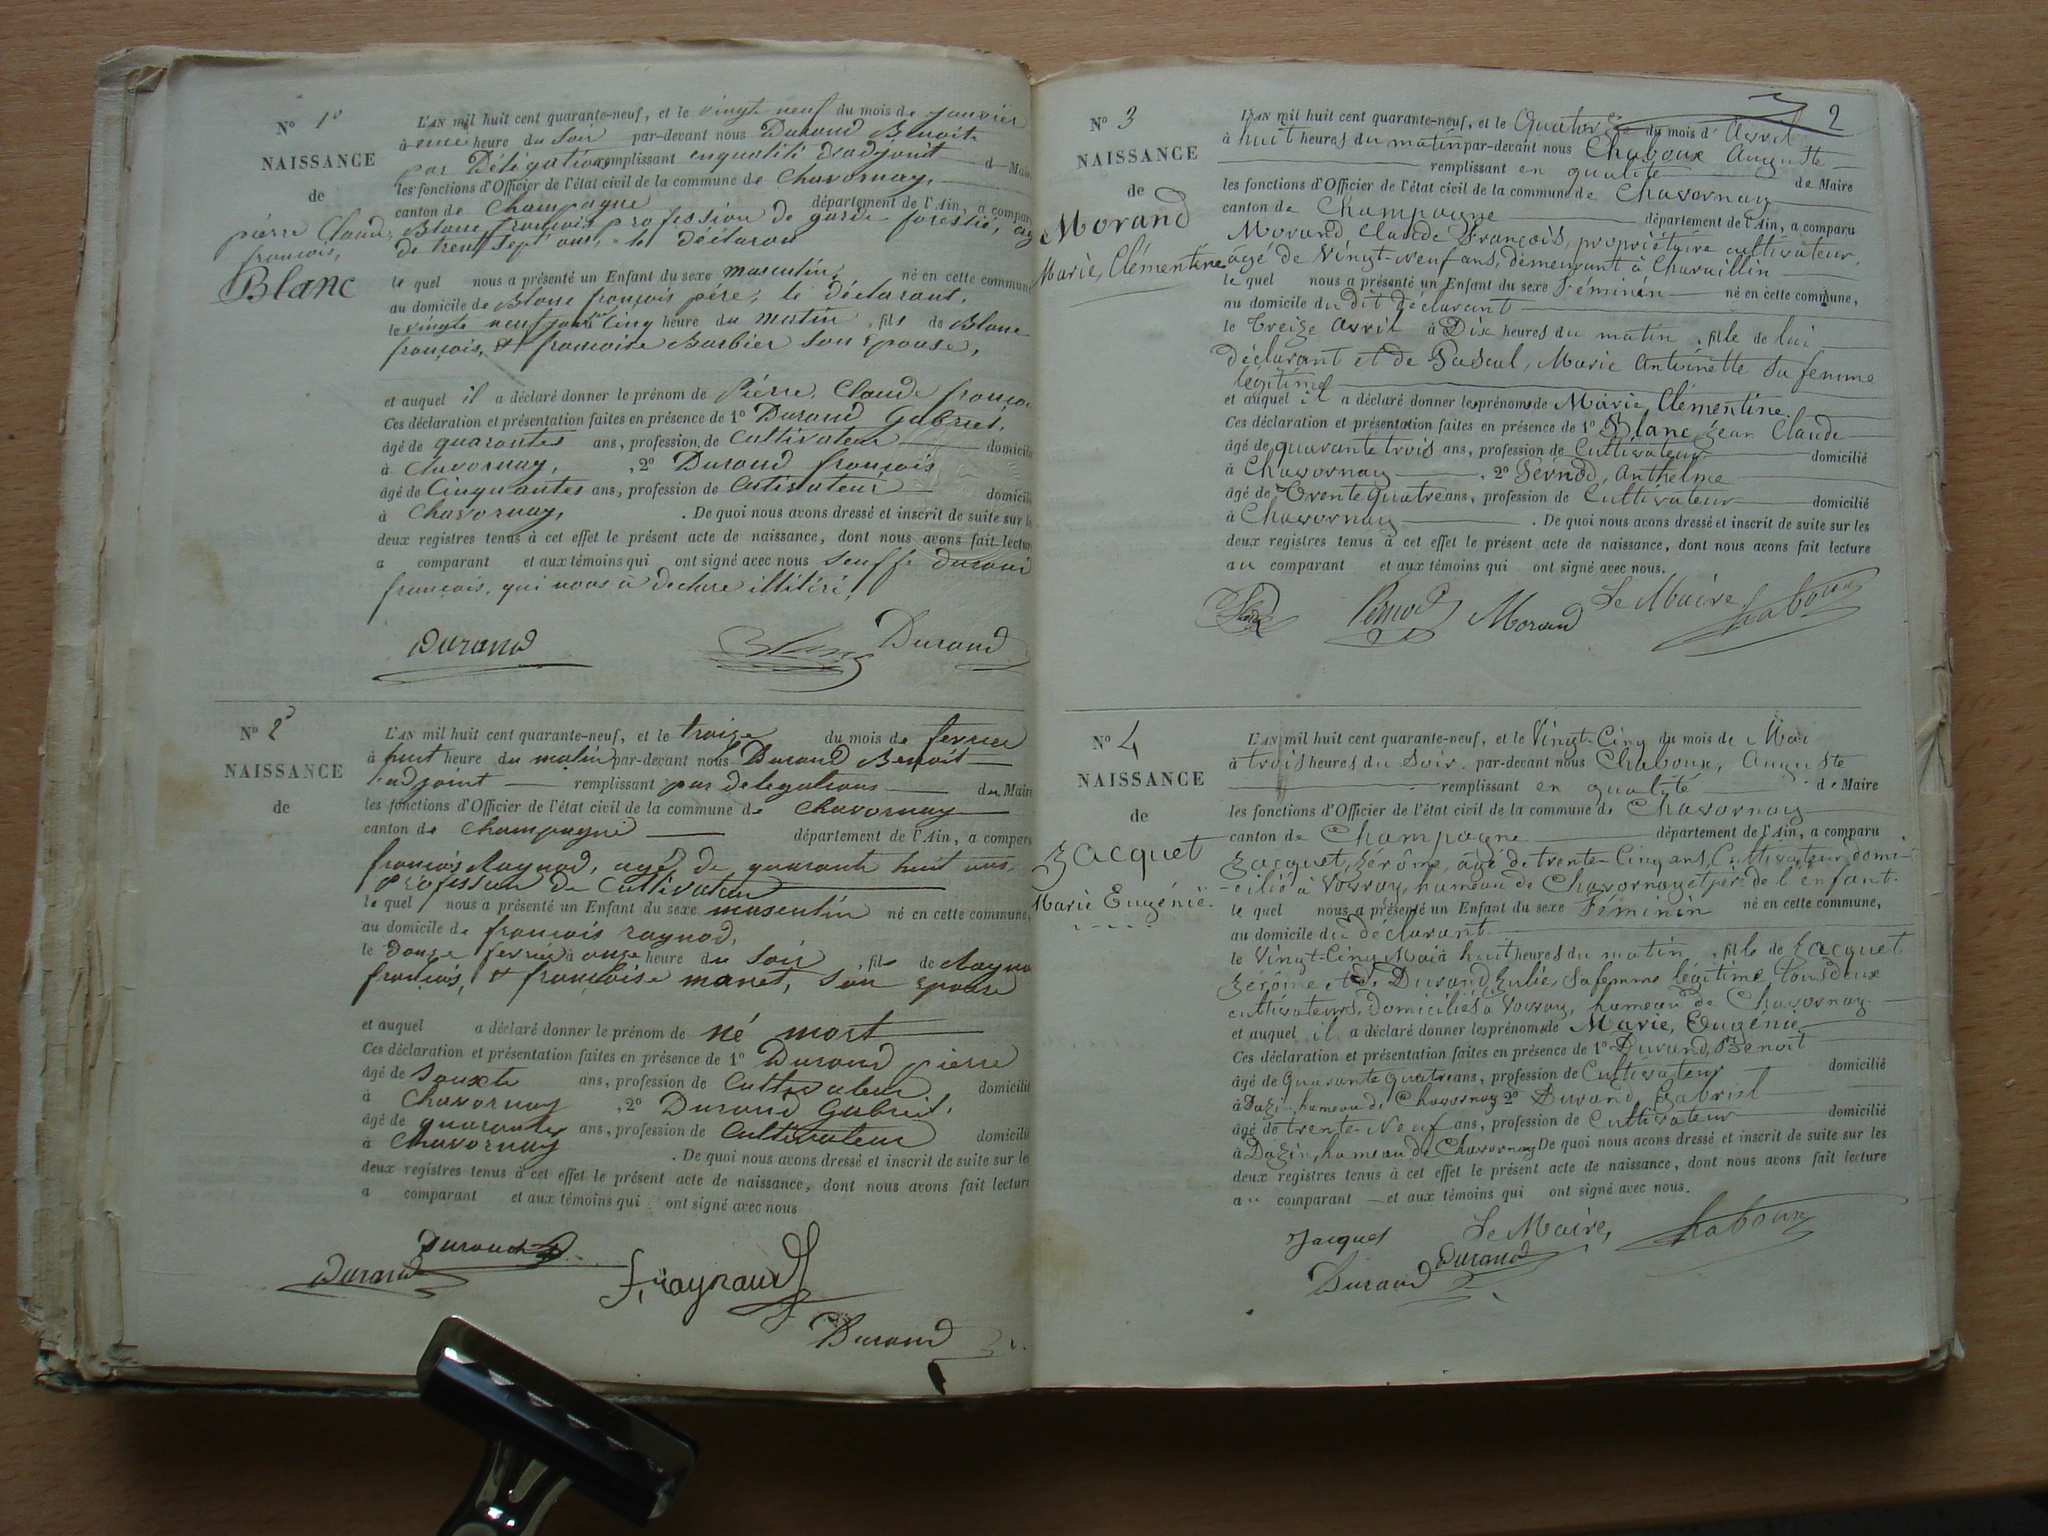 N° 1°
NAISSANCE
de
pierre Claude
françois,
Blanc
L'AN mil huit cent quarante-neuf, et le vingte neuf du mois de janvier
à une heure du soir par-devant nous Durand Benoit
par Délégation remplissant enqualité d'adjoint d Maire
les fonctions d'Officier de l'état civil de la commune de Chavornay,
canton de Champagne département de l'Ain, a comparu
Blanc françois profession de garde forestié, agé
de trent sept ans, le déclarant
le quel nous a présenté un Enfant du sexe masculin, né en cette commune
au domicile de Blanc françois pére, le déclarant,
le vingte neuf jour à Cinq heure du matin, fils de Blanc
françois, et françoise Barbier son épouse,
et auquel il a déclaré donner le prénom de Piérre, Claude françois
Ces déclaration et présentation faites en présence de 1° Durand Gabriel,
âgé de quarantes ans, profession de Cultivateur domicilié
à Chavornay, , 2° Durand françois
âgé de Cinquantes ans, profession de Cultivateur domicilié
à Chavornay, . De quoi nous avons dressé et inscrit de suite sur les
deux registres tenus à cet effet le présent acte de naissance, dont nous avons fait lecture
a comparant et aux témoins qui ont signé avec nous seuffe durand
françois, qui nous à declare illitéré,
Durand Blanc Durand
N° 2°
NAISSANCE
de
L'AN mil huit cent quarante-neuf, et le traize du mois de fevrier
à huit heure du matin par-devant nous Durand Benoit
l'adjoint remplissant par delegations du Maire
les fonctions d'Officier de l'état civil de la commune de Chavornay
canton de Champagne département de l'Ain, a comparu
françois Raynod, agé de quarante huit ans,
profession de Cultivateur
le quel nous a présenté un Enfant du sexe masculin né en cette commune,
au domicile de françois raynod,
le Douze fevrié à onze heure du Soir, fils de Raynod
françois, et françoise manet, son Epouse
et auquel a déclaré donner le prénom de né mort
Ces déclaration et présentation faites en présence de 1° Durand pierre
âgé de Souxte ans, profession de Cultivateur domicilié
à Chavornay , 2° Durand Gabriel,
âgé de quarantes ans, profession de Cultivateur domicilié
à Chavornay . De quoi nous avons dressé et inscrit de suite sur les
deux registres tenus à cet effet le présent acte de naissance, dont nous avons fait lecture
a comparant et aux témoins qui ont signé avec nous
Durand
Durand f. raynaud
Durand
2
N° 3
NAISSANCE
de
Morand
Marie, Clémentine
L'AN mil huit cent quarante-neuf, et le Quatorze du mois d' Avril
à huit heures du matin par-devant nous Chaboux Auguste
remplissant en qualité de Maire
les fonctions d'Officier de l'état civil de la commune de Chavornay
canton de Champagne département de l'Ain, a comparu
Morand Claude François, propriétaire cultivateur,
âgé de Vingt-neuf ans, demeurant à Charaillin
le quel nous a présenté un Enfant du sexe Féminin né en cette commune,
au domicile du dit déclarant
le Treize Avril à Dix heures du matin, fille de lui
déclarant et de Pascal, Marie Antoinette sa femme
légitime
et auquel il a déclaré donner les prénoms de Marie, Clémentine.
Ces déclaration et présentation faites en présence de 1° Blanc Jean Claude
âgé de quarante trois ans, profession de Cultivateur domicilié
à Chavornay , 2° Pernod, Anthelme
âgé de Trente quatre ans, profession de Cultivateur domicilié
à Chavornay . De quoi nous avons dressé et inscrit de suite sur les
deux registres tenus à cet effet le présent acte de naissance, dont nous avons fait lecture
au comparant et aux témoins qui ont signé avec nous.
Pernod Morand Le Maire Chaboux
N° 4
NAISSANCE
de
Jacquet
Marie Eugénie.
L'AN mil huit cent quarante-neuf, et le Vingt-Cinq du mois de Mai
à trois heures du Soir. par-devant nous Chaboux, Auguste
remplissant en qualité de Maire
les fonctions d'Officier de l'état civil de la commune de Chavornay
canton de Champagne département de l'Ain, a comparu
Jacquet, Jérôme, âgé de trente-Cinq ans, Cultivateur, domi-
-cilié à Vovray, hameau de Chavornay et père de l'enfant.
le quel nous a présenté un Enfant du sexe Féminin né en cette commune,
au domicile du déclarant
le Vingt-Cinq Mai à huit heures du matin, fille de Jacquet
Jérôme, et de Durand, Julie, sa femme légitime tous deux
cultivateurs, domiciliés à Vovray, hameau de Chavornay.
et auquel il a déclaré donner les prénoms de Marie, Eugénie
Ces déclaration et présentation faites en présence de 1° Durand, Benoit
âgé de Quarante Quatre ans, profession de Cultivateur domicilié
à Dazin, hameau de Chavornay 2° Durand Gabriel
âgé de trente-Neuf ans, profession de Cultivateur domicilié
à Dazin, hameau de Chavornay De quoi nous avons dressé et inscrit de suite sur les
deux registres tenus à cet effet le présent acte de naissance, dont nous avons fait lecture
au comparant et aux témoins qui ont signé avec nous.
Jacquet Le Maire, Chaboux
Durand Durand